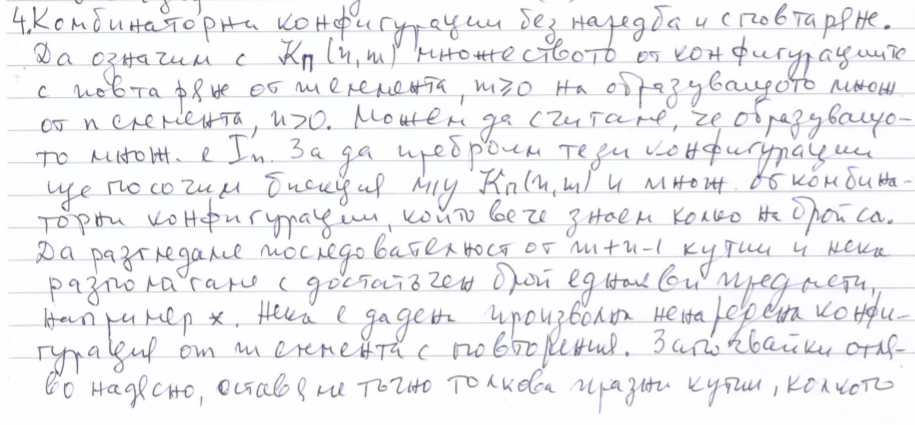 4. Комбинаторни конфигурации без наредба и с повтаряне.
Да означим с Kп(n,m) множеството от конфигурациите
с повтаряне от m елемента, m≥0 на образуващото множ
от n елемента, n>0. Можем да считаме, че образуващо-
то множ. е In. За да преброим тези конфигурации
ще посочим биекция м/у Kп(n,m) и множ. от комбина-
торни конфигурации, които вече знаем колко на брой са.
Да разгледаме последователност от m+n-1 кутии и нека
разполагаме с достатъчен брой еднакви предмети,
например x. Нека е дадена произволна ненаредена конфи-
гурация от m елемента с повторения. Започвайки отля-
во надясно, оставяме точно толкова празни кутии, колкото